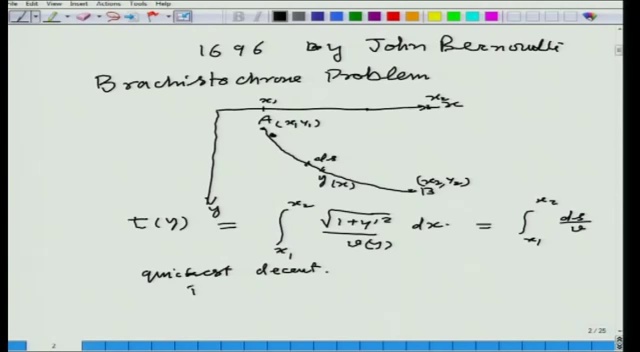 Edit View Insert Actions Tools Help
1696 By John Bernoulli
Brachistochrone Problem
x₁ x₂ x
A (x₁, y₁)
ds
y(x) (x₂, y₂)
B
y
t(y) = ∫_{x₁}^{x₂} √(1+y'²) / v(y) dx. = ∫_{x₁}^{x₂} ds/v
quickest decent.
2 / 25
2